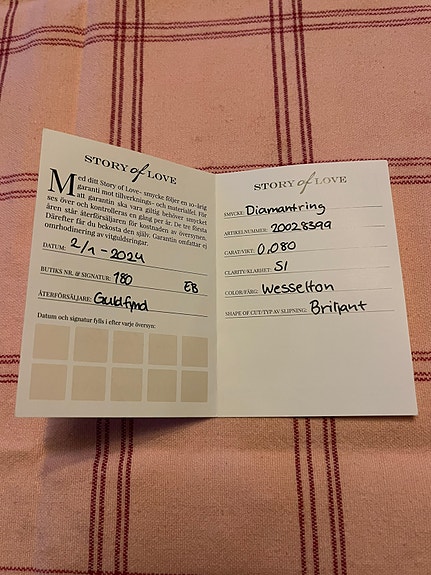 STORY of LOVE
Med ditt Story of Love- smycke följer en 10-årig
garanti mot tillverknings- och materialfel. För
att garantin ska vara giltig behöver smycket
ses över och kontrolleras en gång per år. De tre första
åren står återförsäljaren för kostnaden av översynen.
Därefter får du bekosta den själv. Garantin omfattar ej
omrhodinering av vitguldsringar.
DATUM: 2/1-2024
BUTIKS NR. & SIGNATUR: 180 EB
ÅTERFÖRSÄLJARE: Guldfynd
Datum och signatur fylls i efter varje översyn:
STORY of LOVE
SMYCKE: Diamantring
ARTIKELNUMMER: 20028599
CARAT/VIKT: 0,080
CLARITY/KLARHET: SI
COLOR/FÄRG: Wesselton
SHAPE OF CUT/TYP AV SLIPNING: Briljant